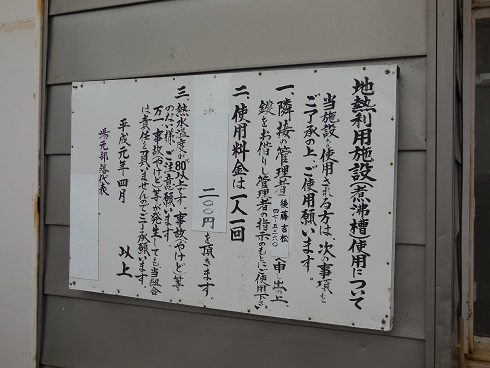 地熱利用施設(煮沸槽使用)について
当施設を使用される方は、次の事項を
ご了承の上、ご使用願います。
一、隣接の管理者 後藤吉松 へ申し出の上、
鍵をお借りし管理者の指示のもとにご使用下さい
二、使用料金は一人一回
二〇〇円を頂きます。
三、熱水温度が80°以上です。事故(やけど)等
のない様に、ご注意願います
万一事故(やけど)等が発生しても当組合
は責任を負いませんのでご了承願います。
以上
平成元年四月
湯元部落代表